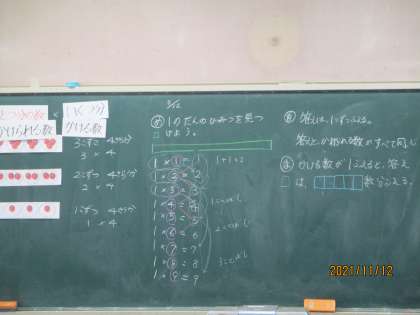 かけられる数
×
(いくつ分)
かける数
3こずつ 4さら分
3 × 4
2こずつ 4さら分
2 × 4
1こずつ 4さら分
1 × 4
3/12
1のだんのひみつを見つ
けよう。
1 × 1 = 1
1 × 2 = 2
1 × 3 = 3
1 × 4 = 4
1 × 5 = 5
1 × 6 = 6
1 × 7 = 7
1 × 8 = 8
1 × 9 = 9
1+1=2
答えは、1ずつふえる。
答えとかける数がすべて同じ
かける数が1ふえると、答え
は、
数ずつふえる。
2021/11/12